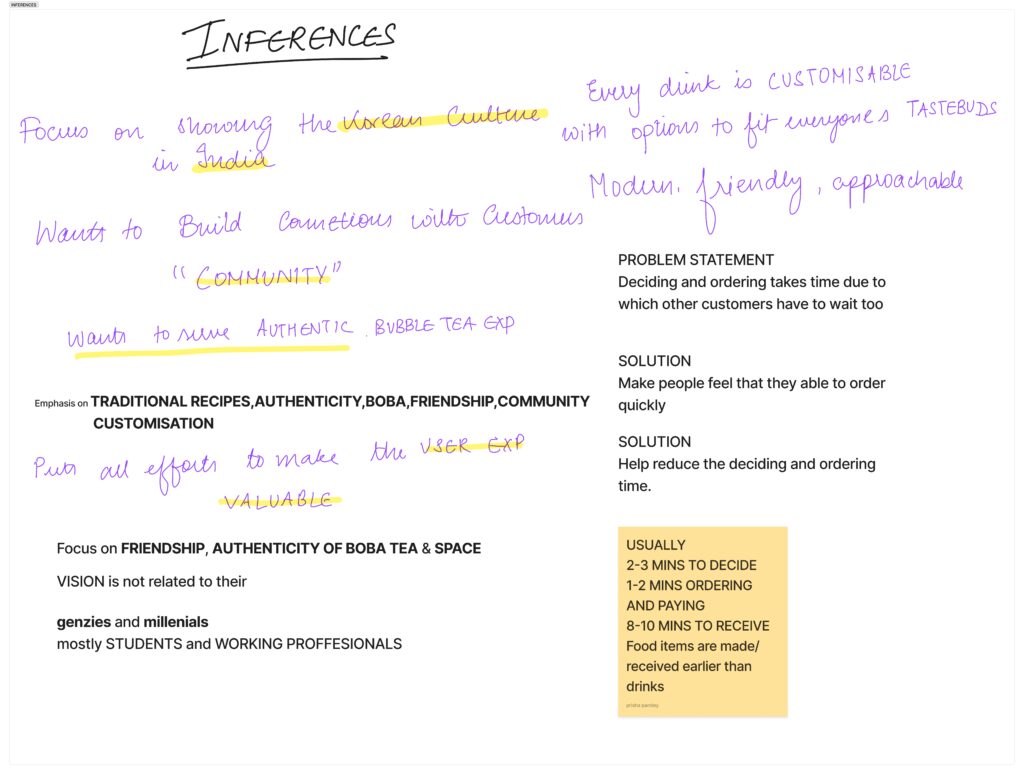 INFERENCES
INFERENCES
Focus on showing the Korean Culture
in India
Wants to Build Connetions with Customers
"COMMUNITY"
Wants to serve AUTHENTIC BUBBLE TEA EXP
Emphasis on TRADITIONAL RECIPES,AUTHENTICITY,BOBA,FRIENDSHIP,COMMUNITY
CUSTOMISATION
Puts all efforts to make the USER EXP
VALUABLE
Focus on FRIENDSHIP, AUTHENTICITY OF BOBA TEA & SPACE
VISION is not related to their
genzies and millenials
mostly STUDENTS and WORKING PROFFESIONALS
Every drink is CUSTOMISABLE
with options to fit everyone's TASTEBUDS
Modern, friendly, approachable
PROBLEM STATEMENT
Deciding and ordering takes time due to
which other customers have to wait too
SOLUTION
Make people feel that they able to order
quickly
SOLUTION
Help reduce the deciding and ordering
time.
USUALLY
2-3 MINS TO DECIDE
1-2 MINS ORDERING
AND PAYING
8-10 MINS TO RECEIVE
Food items are made/
received earlier than
drinks